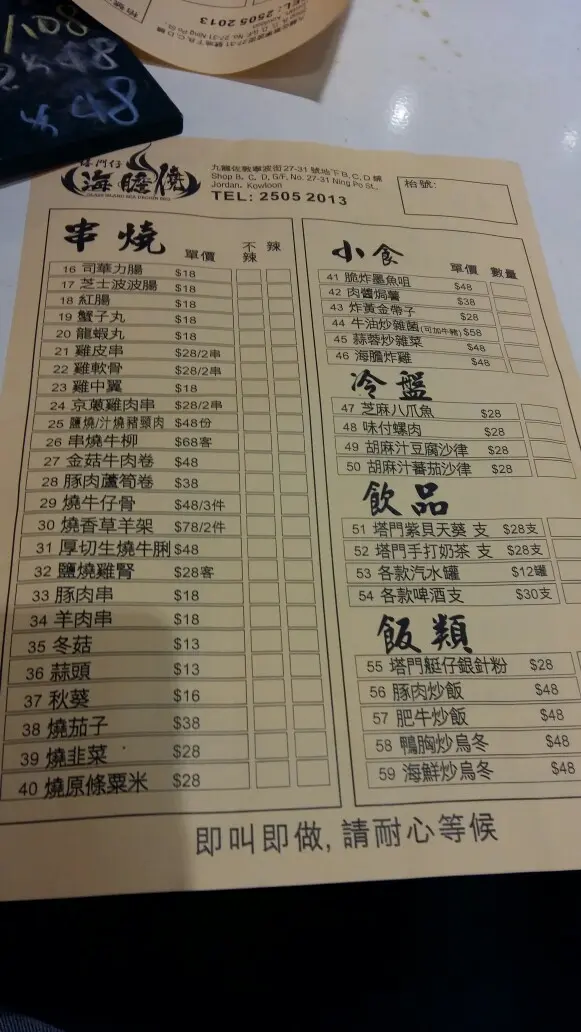 /108
48
48
TEL: 2505 2013
塔門仔
海膽燒
九龍佐敦寧波街27-31號地下B, C, D鋪
Shop B, C, D, G/F, No. 27-31 Ning Po St.,
Jordan, Kowloon
TEL: 2505 2013
枱號:
串燒
單價 不辣 辣
16 司華力腸 $18
17 芝士波波腸 $18
18 紅腸 $18
19 蟹子丸 $18
20 龍蝦丸 $18
21 雞皮串 $28/2串
22 雞軟骨 $28/2串
23 雞中翼 $18
24 京蔥雞肉串 $28/2串
25 鹽燒/汁燒豬頸肉 $48份
26 串燒牛柳 $68客
27 金菇牛肉卷 $48
28 豚肉蘆筍卷 $38
29 燒牛仔骨 $48/3件
30 燒香草羊架 $78/2件
31 厚切生燒牛脷 $48
32 鹽燒雞腎 $28客
33 豚肉串 $18
34 羊肉串 $18
35 冬菇 $13
36 蒜頭 $13
37 秋葵 $16
38 燒茄子 $38
39 燒韭菜 $28
40 燒原條粟米 $28
小食
單價 數量
41 脆炸墨魚咀 $48
42 肉醬焗薯 $38
43 炸黃金帶子 $28
44 牛油炒雜菌(可加牛髀) $58
45 蒜蓉炒雜菜 $48
46 海膽炸雞 $48
冷盤
47 芝麻八爪魚 $28
48 味付螺肉 $28
49 胡麻汁豆腐沙律 $28
50 胡麻汁蕃茄沙律 $28
飲品
51 塔門紫貝天葵 支 $28支
52 塔門手打奶茶 支 $28支
53 各款汽水罐 $12罐
54 各款啤酒支 $30支
飯類
55 塔門艇仔銀針粉 $28
56 豚肉炒飯 $48
57 肥牛炒飯 $48
58 鴨胸炒烏冬 $48
59 海鮮炒烏冬 $48
即叫即做, 請耐心等候